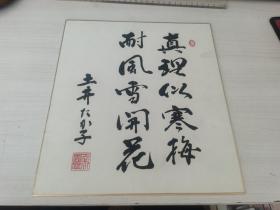 真理似寒梅
耐風雪開花
土井たか子